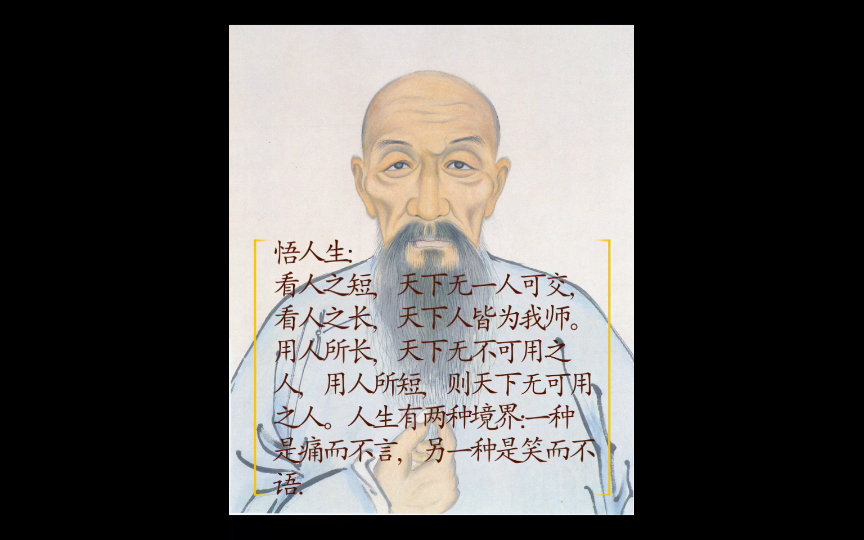 悟人生:
看人之短，天下无一人可交，
看人之长，天下人皆为我师。
用人所长，天下无不可用之
人，用人所短，则天下无可用
之人。人生有两种境界:一种
是痛而不言，另一种是笑而不
语.